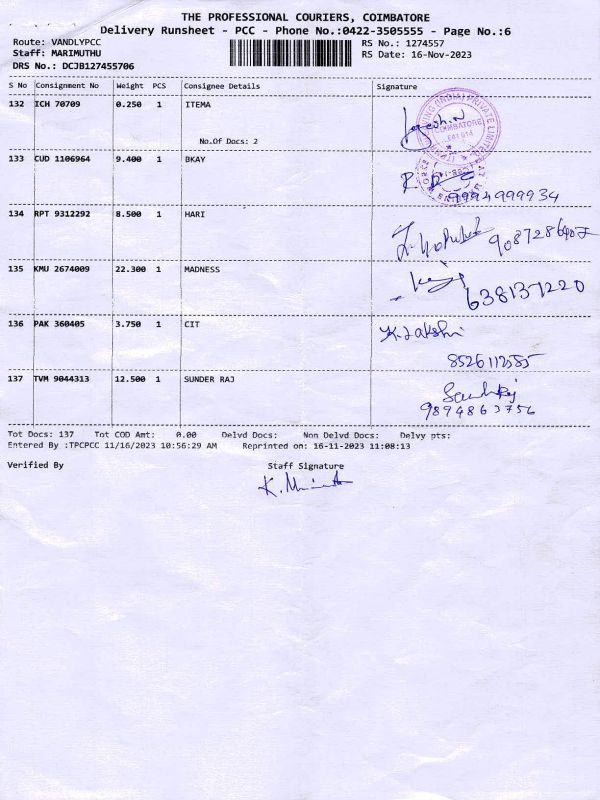 THE PROFESSIONAL COURIERS, COIMBATORE
Delivery Runsheet - PCC - Phone No.:0422-3505555 - Page No.:6
Route: VANDLYPCC RS No.: 1274557
Staff: MARIMUTHU RS Date: 16-Nov-2023
DRS No.: DCJB127455706
S No Consignment No Weight PCS Consignee Details Signature
132 ICH 70709 0.250 1 ITEMA
No.Of Docs: 2
133 CUD 1106964 9.400 1 BKAY
9994999934
134 RPT 9312292 8.500 1 HARI
135 KMU 2674009 22.300 1 MADNESS
136 PAK 360405 3.750 1 CIT K. Jakshi
137 TVM 9044313 12.500 1 SUNDER RAJ
9894863756
Tot Docs: 137 Tot COD Amt: 0.00 Delvd Docs: Non Delvd Docs: Delvy pts:
Entered By :TPCPCC 11/16/2023 10:56:29 AM Reprinted on: 16-11-2023 11:08:13
Verified By Staff Signature